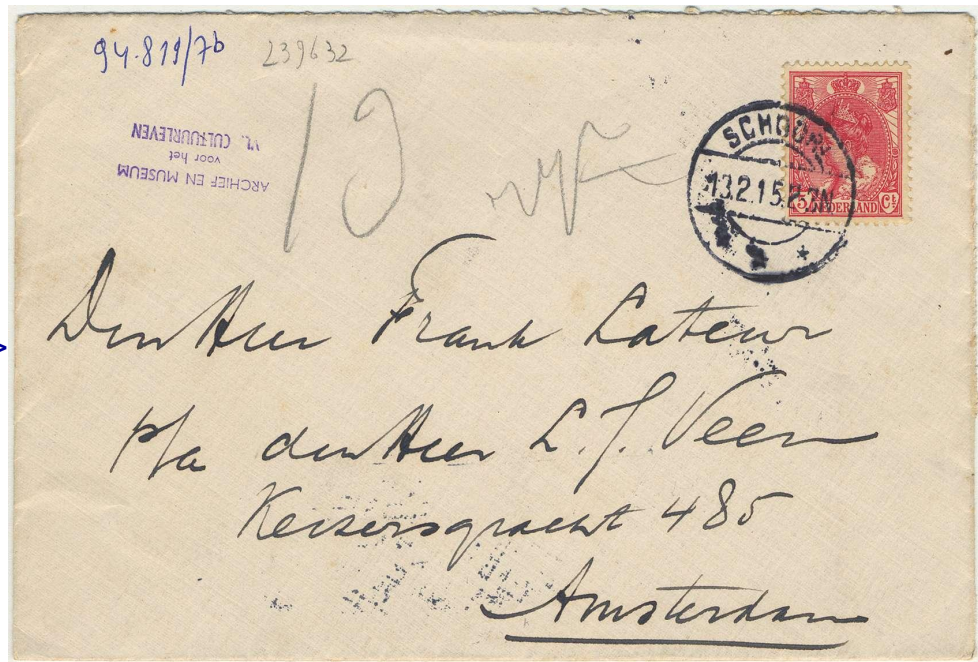 94.819/7b
239632
ARCHIEF EN MUSEUM
voor het
VL. CULTUURLEVEN
19
SCHOORL
13.2.15.2-3N
5 NEDERLAND Ct
Den Heer Frank Lateur
p/a den Heer L. J. Veen
Keizersgracht 485
Amsterdam